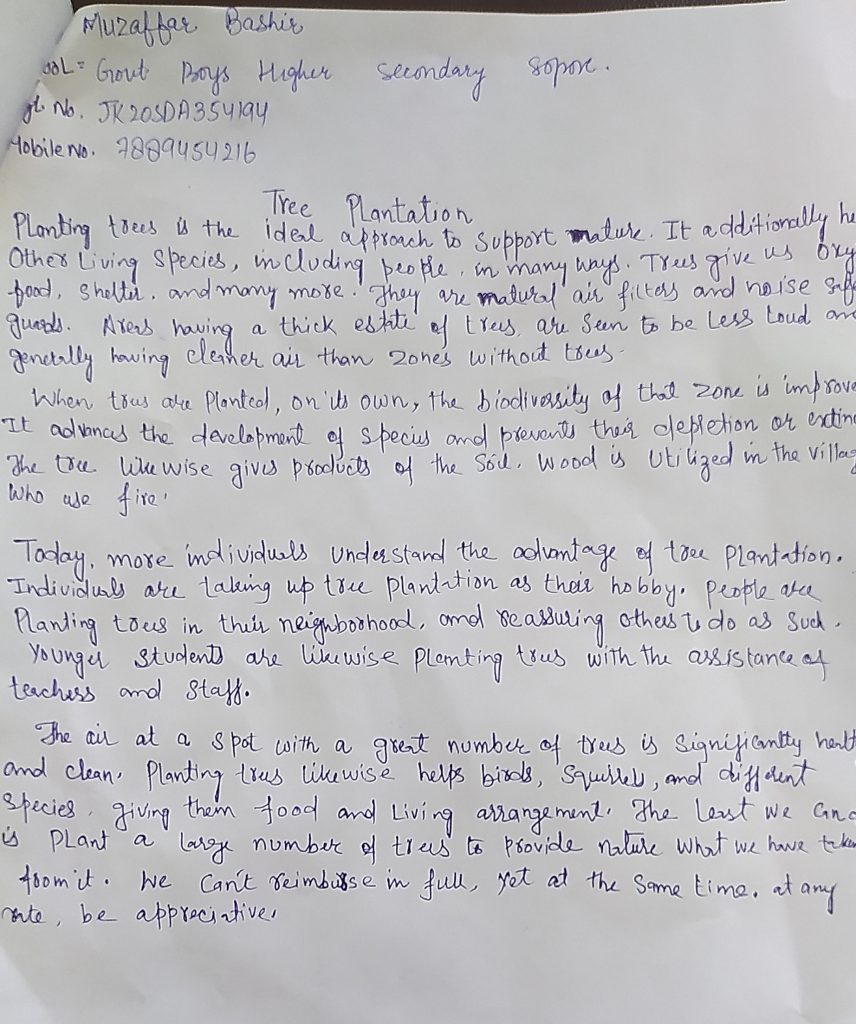 Muzaffar Bashir
ool = Govt Boys Higher secondary sopore.
gt No. JK20SDA354194
Mobile no. 7889454216
Tree Plantation
Planting trees is the ideal approach to support nature. It additionally he
Other Living Species, including people, in many ways. Trees give us oxy
food, shelter, and many more. They are natural air filters and noise safe
guards. Areas having a thick estate of trees are seen to be less loud and
generally having cleaner air than zones without trees.
When trees are planted, on its own, the biodiversity of that zone is improve
It advances the development of species and prevents their depletion or extinc
The tree likewise gives products of the Soil. Wood is Utilized in the villag
who use fire.
Today, more individuals understand the advantage of tree plantation.
Individuals are taking up tree plantation as their hobby. people are
Planting trees in their neighborhood, and reassuring others to do as such.
Younger students are likewise planting trees with the assistance of
teachers and staff.
The air at a spot with a great number of trees is significantly healt
and clean. Planting trees likewise helps birds, squirrels, and different
species, giving them food and living arrangement. The least we can d
is plant a large number of trees to provide nature what we have taken
from it. We can't reimburse in full, yet at the same time, at any
rate, be appreciative.